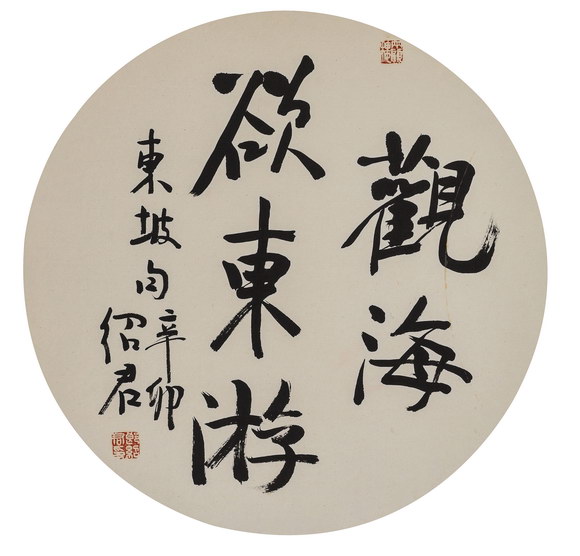 觀海
欲東游
東坡句辛卯
紹君